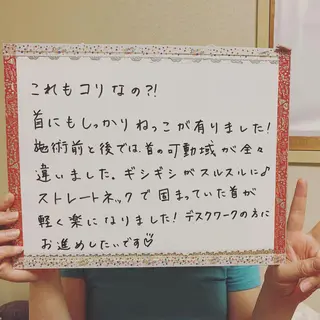 これもコリなの?!
首にもしっかりねっこが有りました!
施術前と後では、首の可動域が全々
違いました。ギシギシがスルスルに♪
ストレートネックで固まっていた首が
軽く楽になりました!デスクワークの方に
お進めしたいです♡